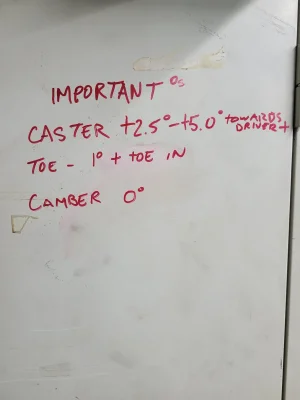 IMPORTANT °s
CASTER +2.5° - +5.0° TOWARDS DRIVER +
TOE - 1° + TOE IN
CAMBER 0°